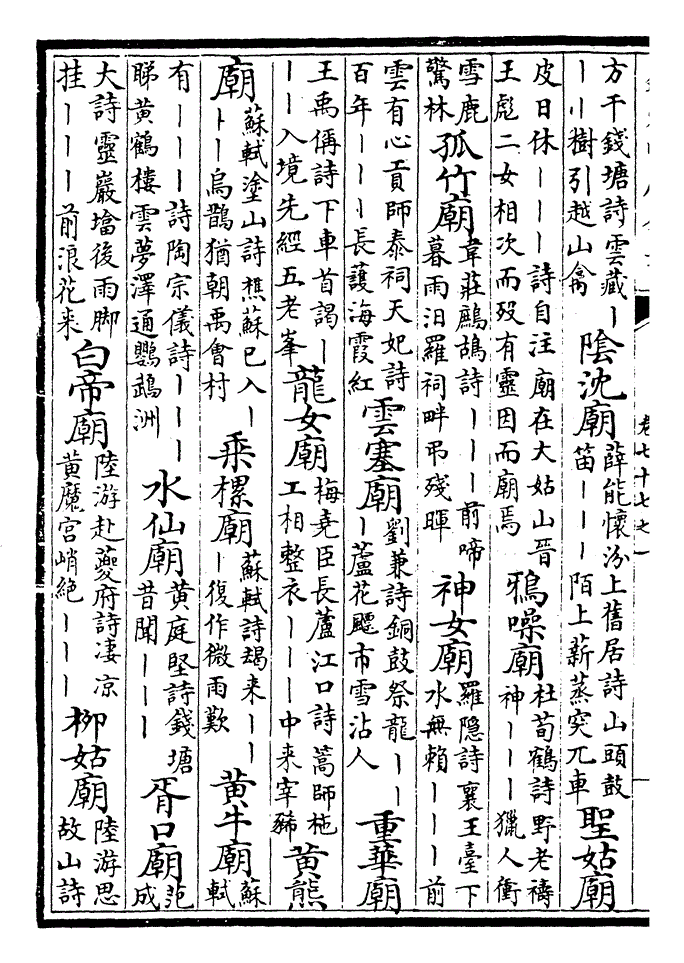 卷七十七之一
方干錢塘詩雲藏丨
丨丨樹引越山禽
陰沈廟
薛能懷汾上舊居詩山頭鼓
笛丨丨丨陌上薪蒸突兀車
聖姑廟
皮日休丨丨丨詩自注廟在大姑山晉
王彪二女相次而歿有靈因而廟焉
鴉噪廟
杜荀鶴詩野老禱
神丨丨丨獵人衝
雪鹿
驚林
孤竹廟
韋莊鷓鴣詩丨丨丨前啼
暮雨汨羅祠畔弔殘暉
神女廟
羅隱詩襄王臺下
水無賴丨丨丨前
雲有心貢師泰祠天妃詩
百年丨丨丨長護海霞紅
雲塞廟
劉兼詩銅鼓祭龍丨丨
丨蘆花颺市雪沾人
重華廟
王禹偁詩下車首謁丨
丨丨入境先經五老峯
龍女廟
梅堯臣長蘆江口詩篙師柂
工相整衣丨丨丨中来宰豨
黃熊
廟
蘇軾塗山詩樵蘇已入丨
丨丨烏鵲猶朝禹會村
乘樏廟
蘇軾詩朅来丨丨
丨復作微雨歎
黃牛廟
蘇
軾
有丨丨丨詩陶宗儀詩丨丨丨
睇黃鶴樓雲夢澤通鸚鵡洲
水仙廟
黃庭堅詩錢塘
昔聞丨丨丨
胥口廟
范
成
大詩靈巖墖後雨脚
挂丨丨丨前浪花来
白帝廟
陸游赴夔府詩淒凉
黃魔宮峭絕丨丨丨
柳姑廟
陸游思
故山詩